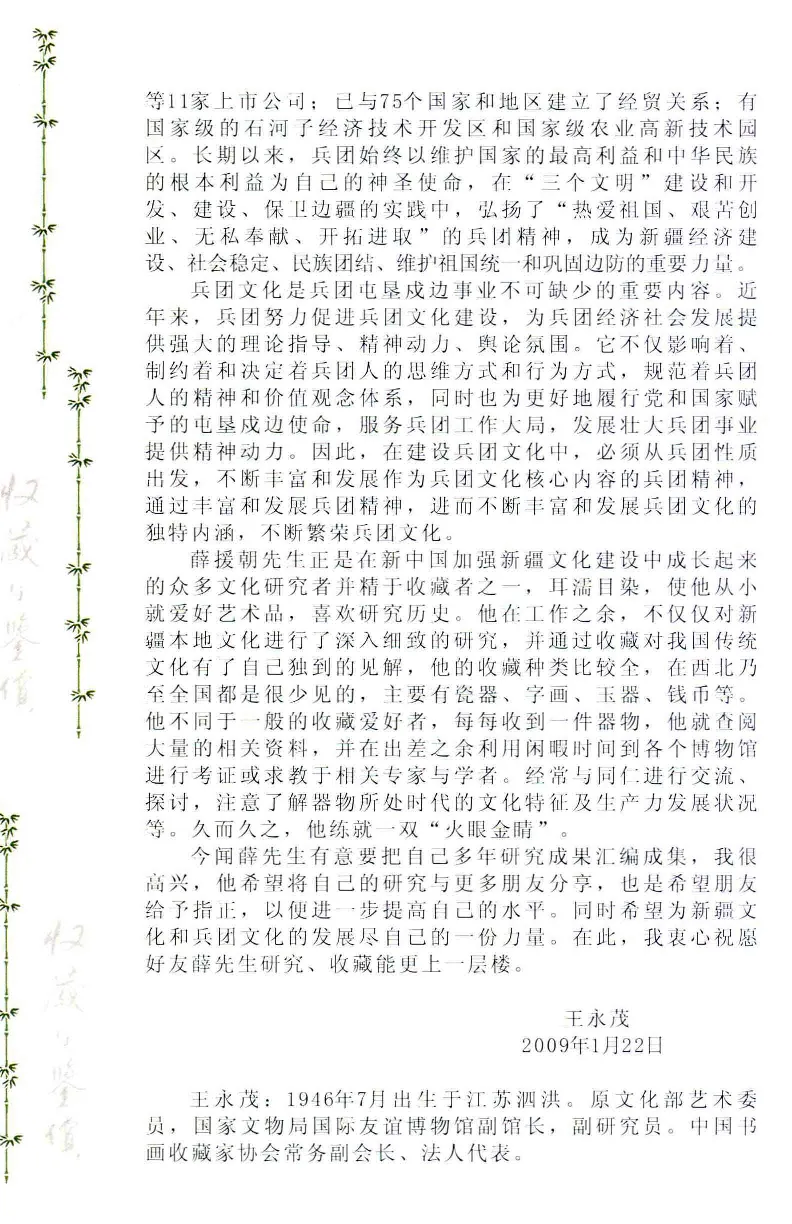 等11家上市公司；已与75个国家和地区建立了经贸关系；有
国家级的石河子经济技术开发区和国家级农业高新技术园
区。长期以来，兵团始终以维护国家的最高利益和中华民族
的根本利益为自己的神圣使命，在“三个文明”建设和开
发、建设、保卫边疆的实践中，弘扬了“热爱祖国、艰苦创
业、无私奉献、开拓进取”的兵团精神，成为新疆经济建
设、社会稳定、民族团结、维护祖国统一和巩固边防的重要力量。
兵团文化是兵团屯垦戍边事业不可缺少的重要内容。近
年来，兵团努力促进兵团文化建设，为兵团经济社会发展提
供强大的理论指导、精神动力、舆论氛围。它不仅影响着、
制约着和决定着兵团人的思维方式和行为方式，规范着兵团
人的精神和价值观念体系，同时也为更好地履行党和国家赋
予的屯垦戍边使命，服务兵团工作大局，发展壮大兵团事业
提供精神动力。因此，在建设兵团文化中，必须从兵团性质
出发，不断丰富和发展作为兵团文化核心内容的兵团精神，
通过丰富和发展兵团精神，进而不断丰富和发展兵团文化的
独特内涵，不断繁荣兵团文化。
薛援朝先生正是在新中国加强新疆文化建设中成长起来
的众多文化研究者并精于收藏者之一，耳濡目染，使他从小
就爱好艺术品，喜欢研究历史。他在工作之余，不仅仅对新
疆本地文化进行了深入细致的研究，并通过收藏对我国传统
文化有了自己独到的见解，他的收藏种类比较全，在西北乃
至全国都是很少见的，主要有瓷器、字画、玉器、钱币等。
他不同于一般的收藏爱好者，每每收到一件器物，他就查阅
大量的相关资料，并在出差之余利用闲暇时间到各个博物馆
进行考证或求教于相关专家与学者。经常与同仁进行交流、
探讨，注意了解器物所处时代的文化特征及生产力发展状况
等。久而久之，他练就一双“火眼金睛”。
今闻薛先生有意要把自己多年研究成果汇编成集，我很
高兴，他希望将自己的研究与更多朋友分享，也是希望朋友
给予指正，以便进一步提高自己的水平。同时希望为新疆文
化和兵团文化的发展尽自己的一份力量。在此，我衷心祝愿
好友薛先生研究、收藏能更上一层楼。
王永茂
2009年1月22日
王永茂：1946年7月出生于江苏泗洪。原文化部艺术委
员，国家文物局国际友谊博物馆副馆长，副研究员。中国书
画收藏家协会常务副会长、法人代表。